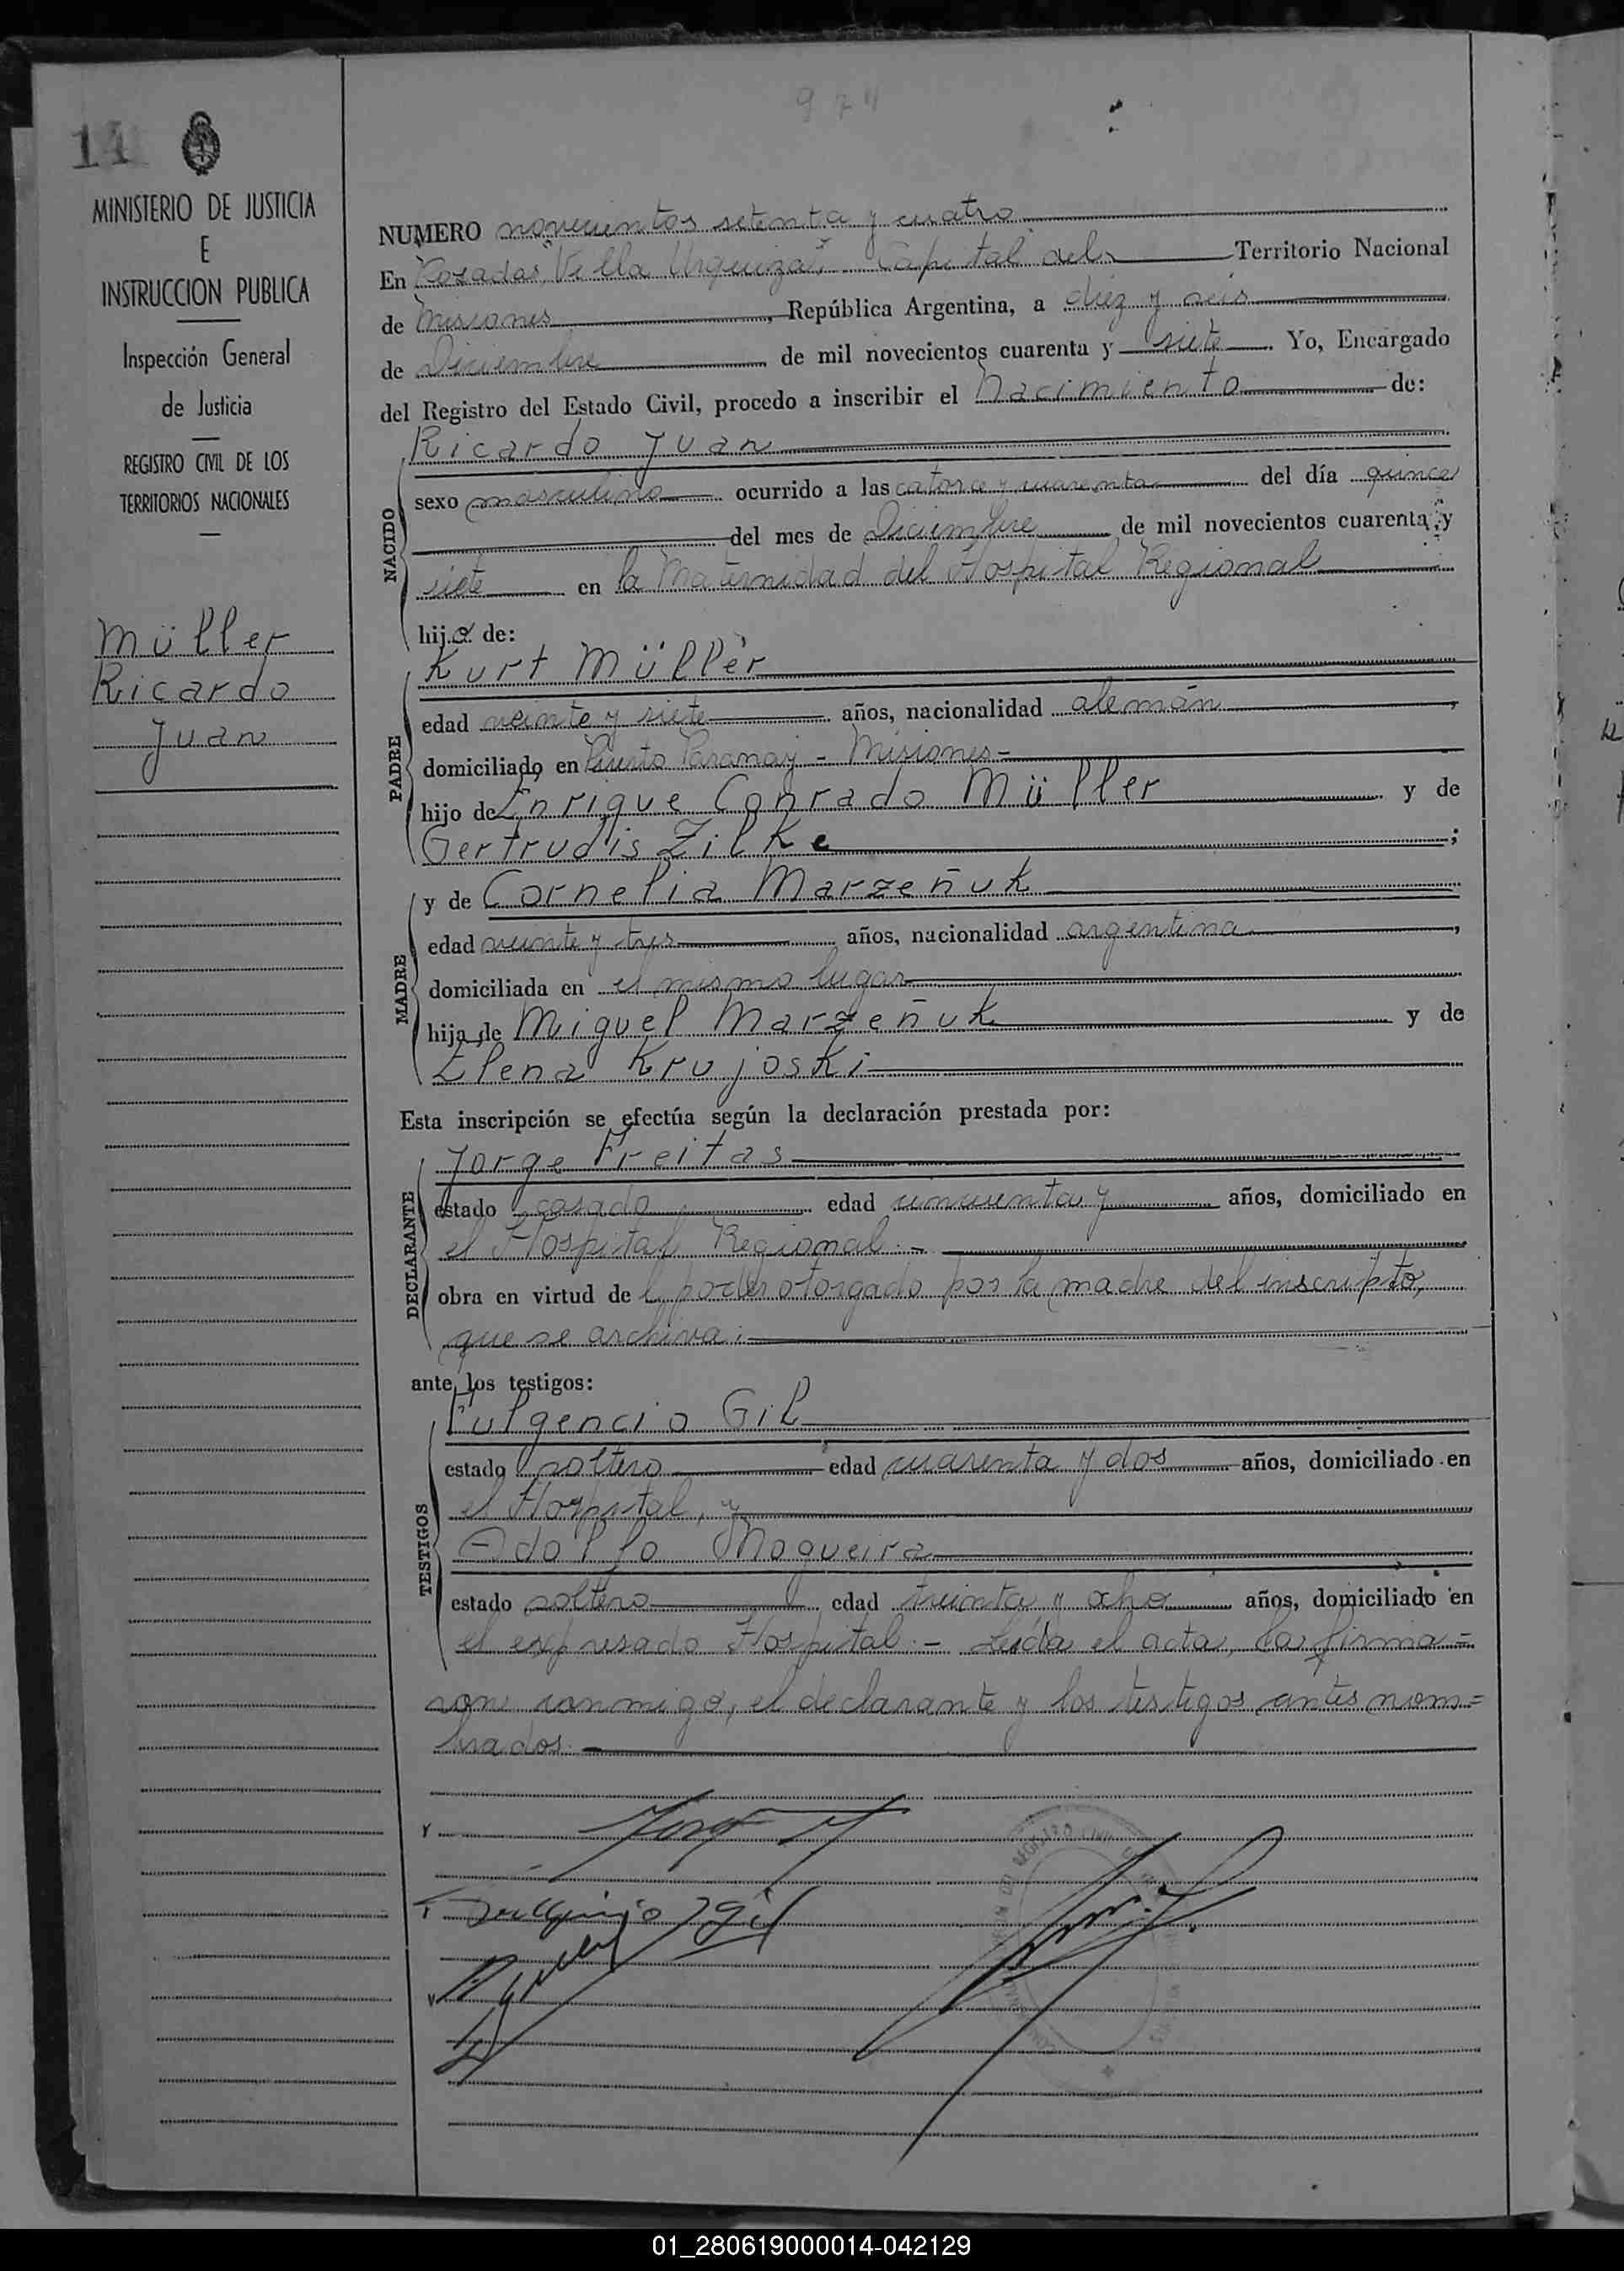 974
14
MINISTERIO DE JUSTICIA
E
INSTRUCCION PUBLICA
Inspección General
de Justicia
REGISTRO CIVIL DE LOS
TERRITORIOS NACIONALES
Müller
Ricardo
Juan
NUMERO novecientos setenta y cuatro
En Posadas, "Villa Urquiza", Capital del Territorio Nacional
de Misiones, República Argentina, a diez y seis
de Diciembre de mil novecientos cuarenta y siete. Yo, Encargado
del Registro del Estado Civil, procedo a inscribir el Nacimiento de:
NACIDO
Ricardo Juan
sexo masculino ocurrido a las catorce y cuarenta del día quince
del mes de Diciembre de mil novecientos cuarenta y
siete en la Maternidad del Hospital Regional
hijo de:
PADRE
Kurt Müller
edad veinte y siete años, nacionalidad alemán,
domiciliado en Puerto Paranay - Misiones-
hijo de Enrique Conrado Müller y de
Gertrudis Zilke;
MADRE
y de Cornelia Marzeñuk
edad veinte y tres años, nacionalidad argentina,
domiciliada en el mismo lugar
hija de Miguel Marzeñuk y de
Elena Krujoski
Esta inscripción se efectúa según la declaración prestada por:
DECLARANTE
Jorge Freitas
estado casado edad cincuenta y años, domiciliado en
el Hospital Regional.-
obra en virtud del poder otorgado por la madre del inscripto,
que se archiva.
ante los testigos:
TESTIGOS
Fulgencio Gil
estado soltero edad cuarenta y dos años, domiciliado en
el Hospital, y
Adolfo Nogueira
estado soltero edad treinta y ocho años, domiciliado en
el expresado Hospital.- Leída el acta, la firma=
ron conmigo, el declarante y los testigos antes nom=
brados.
REGISTRO CIVIL
01_280619000014-042129